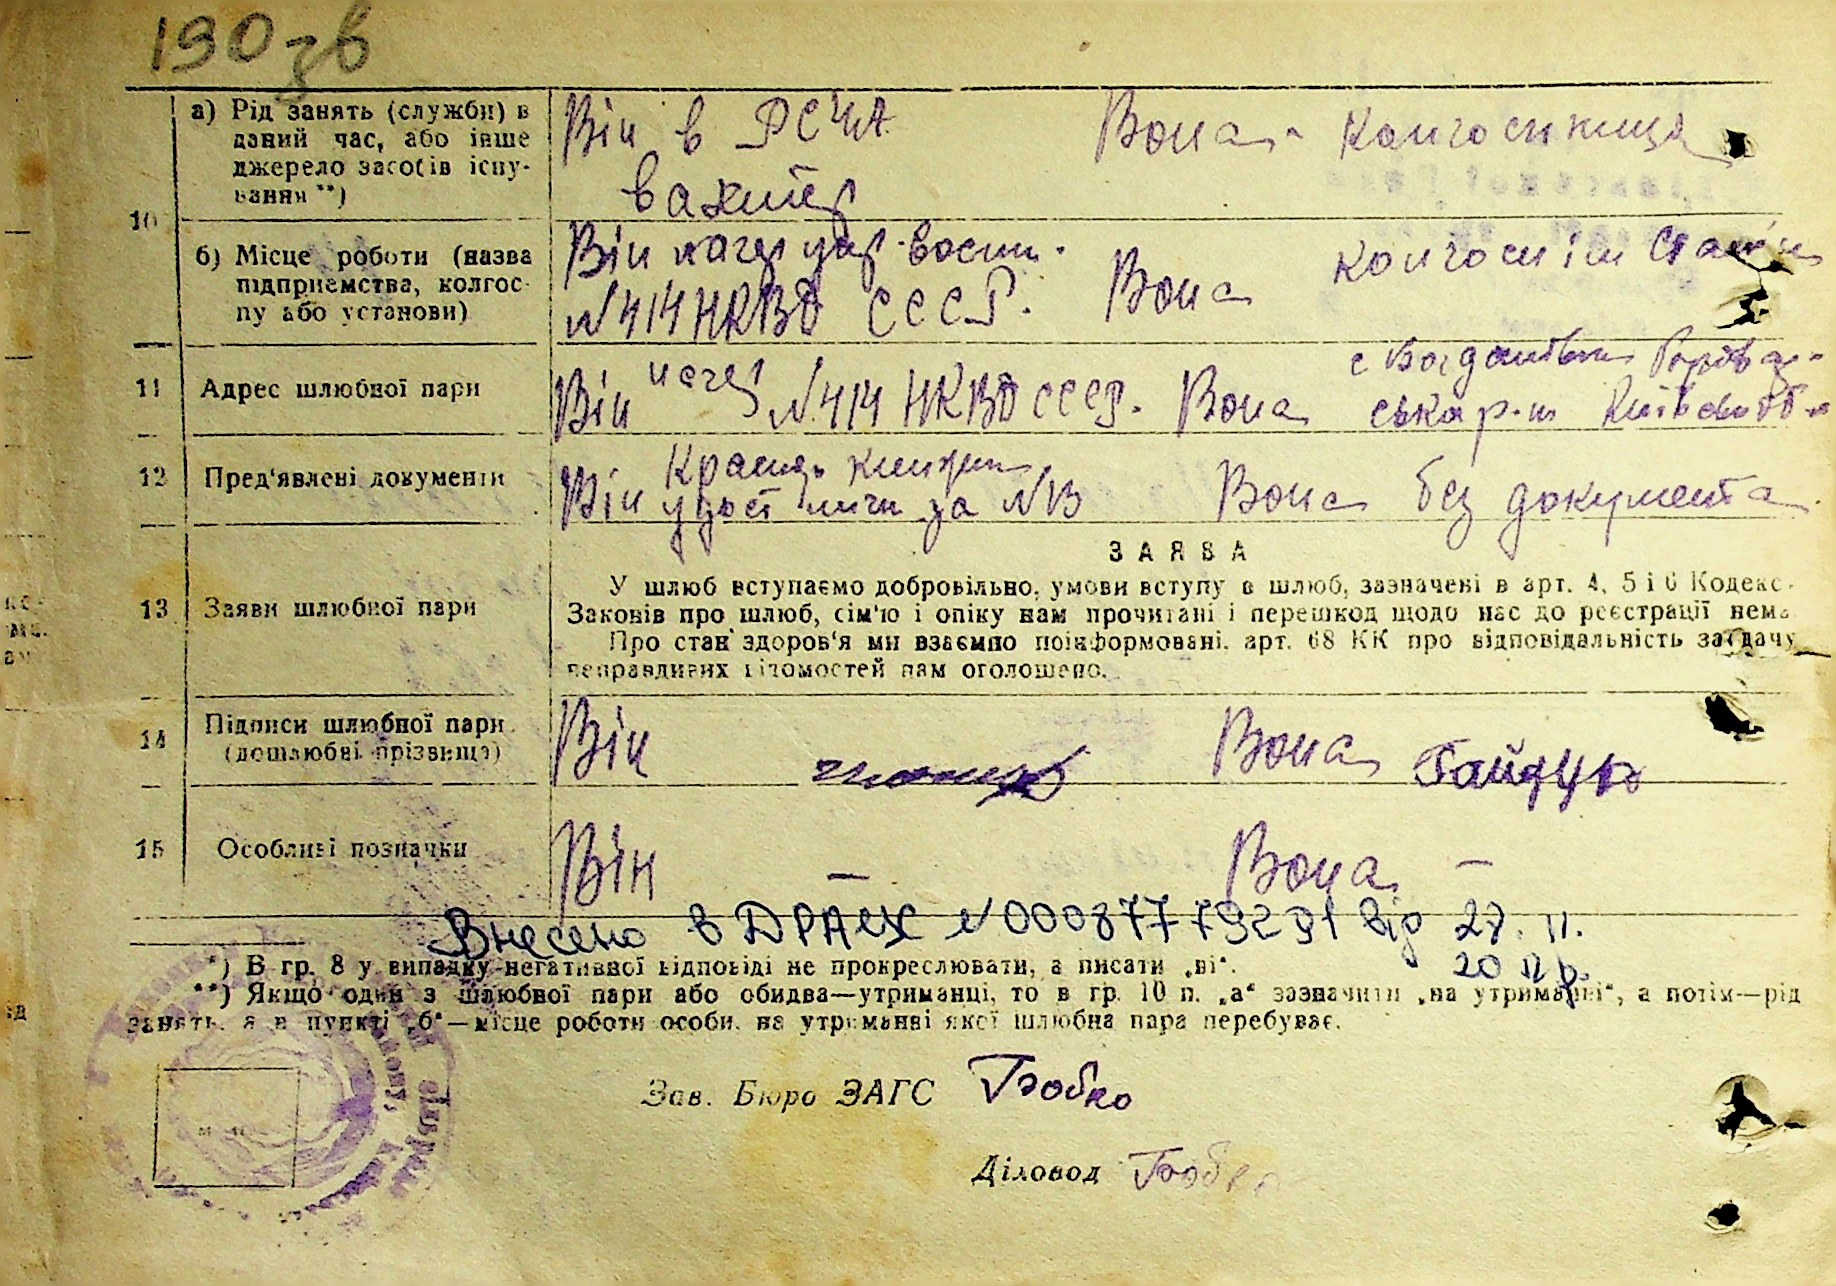 190 зв
а) Рід занять (служби) в
даний час, або інше
джерело засобів існу-
вання **)
Він в РСЧА
Вона - колгоспниця
10
б) Місце роботи (назва
підприємства, колгос-
пу або установи)
Він лагер
№ 414 НКВД СССР.
Вона
колгосп ім
11 Адрес шлюбної пари
Він лагер № 414 НКВД СССР. Вона
с Богданівка
ська р-н Київська обл
12 Пред'явлені документи
Він
за №13
Вона без документа
ЗАЯВА
13 Заяви шлюбної пари
У шлюб вступаємо добровільно, умови вступу в шлюб, зазначені в арт. 4, 5 і 6 Кодекс
Законів про шлюб, сім'ю і опіку нам прочитані і перешкод щодо нас до реєстрації нема
Про стан здоров'я ми взаємно поінформовані. арт. 68 КК про відповідальність за дачу
неправдивих відомостей нам оголошено.
14 Підписи шлюбної пари
(дошлюбні прізвища)
Він
Вона
15 Особливі позначки
Він —
Вона —
Внесено в ДРАЦС №00087779291 від 27.11.
20 р.
*) В гр. 8 у випадку негативної відповіді не прокреслювати, а писати „ні".
**) Якщо один з шлюбної пари або обидва—утриманці, то в гр. 10 п. „а" зазначити „на утриманні", а потім—рід
занять, а в пункті „б"—місце роботи особи, на утриманні якої шлюбна пара перебуває.
Зав. Бюро ЗАГС
Діловод